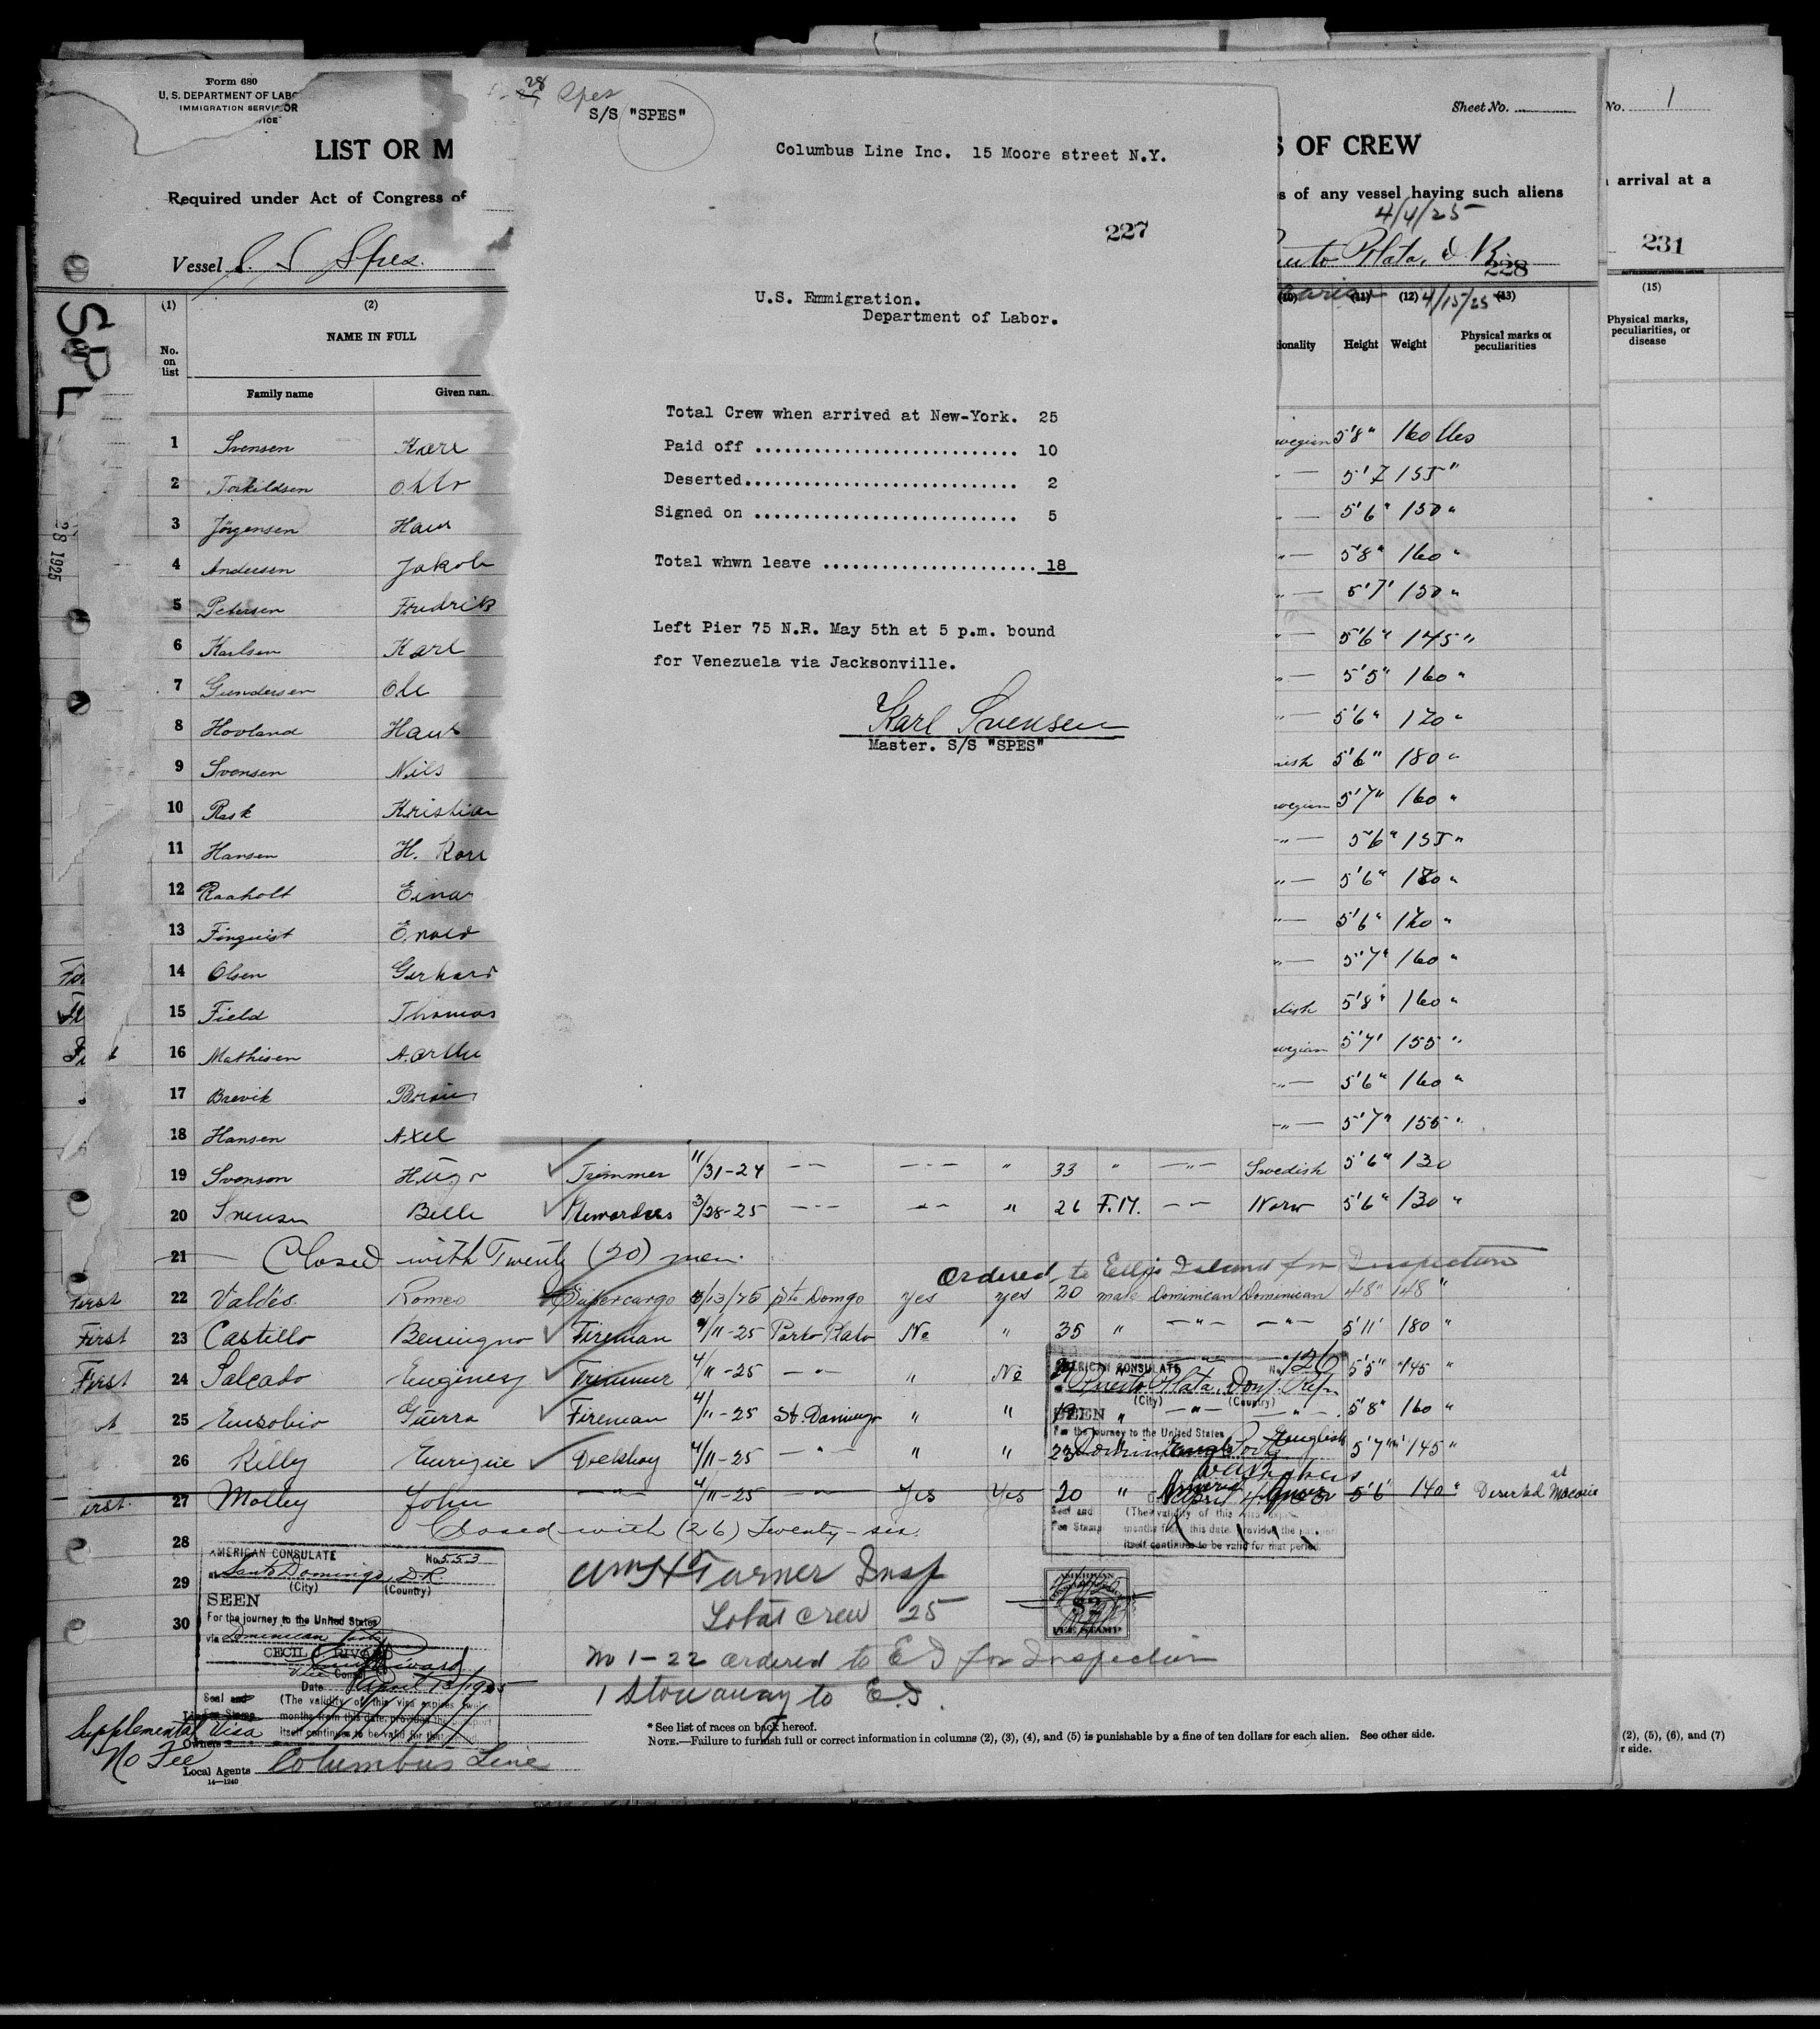 Form 680
U. S. DEPARTMENT OF LABO
IMMIGRATION SERVICE
LIST OR M
Required under Act of Congress of
Vessel S. S. Spes.
28
Spes
S/S "SPES"
Columbus Line Inc. 15 Moore street N.Y.
227
U.S. Emmigration.
Department of Labor.
Total Crew when arrived at New-York. 25
Paid off ........................... 10
Deserted............................ 2
Signed on ........................... 5
Total whwn leave ...................... 18
Left Pier 75 N.R. May 5th at 5 p.m. bound
for Venezuela via Jacksonville.
Karl Svensen
Master. S/S "SPES"
Sheet No.
S OF CREW
s of any vessel having such aliens
4/4/25
Puerto Plata, D. R.
228
4/15/25
No. 1
arrival at a
231
(15)
Physical marks, peculiarities, or disease
(1) (2) (10) (11) (12) (13)
No. on list
NAME IN FULL
Family name Given nam
tionality Height Weight Physical marks or peculiarities
28 1925
1 Svensen Karl wegian 5'8" 160 lbs
2 Torkildsen Otto 5'7 155"
3 Jörgensen Hans 5'6" 150 "
4 Andersen Jakob 5'8" 160 "
5 Petersen Fredrik 5'7' 150 "
6 Karlsen Karl 5'6" 145 "
7 Gundersen Ole 5'5" 160 "
8 Hovland Hans 5'6" 170 "
9 Svensen Nils nish 5'6" 180 "
10 Rask Kristian wegian 5'7" 160 "
11 Hansen H. Kar 5'6" 155 "
12 Raaholt Einar 5'6" 180 "
13 Finquist 5'6" 170 "
14 Olsen Gerhard 5'7" 160 "
15 Field Thomas dish 5'8" 160 "
16 Mathisen wegian 5'7' 155 "
17 Brevik 5'6" 160 "
18 Hansen Axel 5'7" 155 "
19 Svenson Hugo Trimmer 11/31-24 — — — " 33 " —"— Swedish 5'6" 130
20 Svensen Belle Stewardess 3/28-25 — — — " 26 F.M. — Norw 5'6" 130 "
21 Closed with Twenty (20) men.
Ordered to Ellis Island for Inspection
First 22 Valdés. Romeo Supercargo 4/13/25 Sto. Domgo yes yes 20 male Dominican Dominican 4'8" 148 "
First 23 Castillo Benigno Fireman 4/11-25 Porto Plata No " 35 " —"— —"— 5'11' 180 "
First 24 Salcado Trimmer 4/11-25 —"— " No 5'5" 145 "
25 Eusobio Guerra Fireman 4/11-25 St. Domingo " " 19 " —"— —"— 5'8" 160 "
26 Killy Deckboy 4/11-25 —"— " " 23 English 5'7" 145 "
irst 27 Molley John 4/11-25 —"— Yes Yes 20 " 5'6' 140 " Deserted at Macoris
28 Closed with (26) Twenty-six.
29
30
AMERICAN CONSULATE No. 126
Puerto Plata, Dom. Rep.
(City) (Country)
SEEN
For the journey to the United States
(The validity of this visa expires
months from this date, provided the passport
itself continues to be valid for that period.
Seal and Fee Stamp
AMERICAN CONSULATE No. 553
at Santo Domingo, D.R.
(City) (Country)
SEEN
For the journey to the United States
via Dominican Ports
CECIL
Vice Consul
Date April 13/1925
Seal and
(The validity of this visa expires twelve
months from this date, provided the passport
itself continues to be valid for that
Wm H Turner Insp
Total crew 25
No 1-22 ordered to E I for Inspection
1 Stowaway to E.I.
FEE STAMP
Supplemental Visa
No Fee
Owners
Local Agents Columbus Line
14—1240
* See list of races on back hereof.
NOTE.—Failure to furnish full or correct information in columns (2), (3), (4), and (5) is punishable by a fine of ten dollars for each alien. See other side.
(2), (5), (6), and (7)
r side.